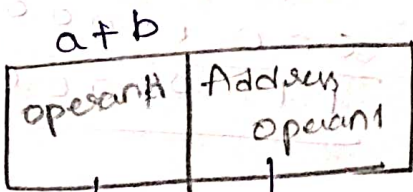 a+b
operant
Address
operant